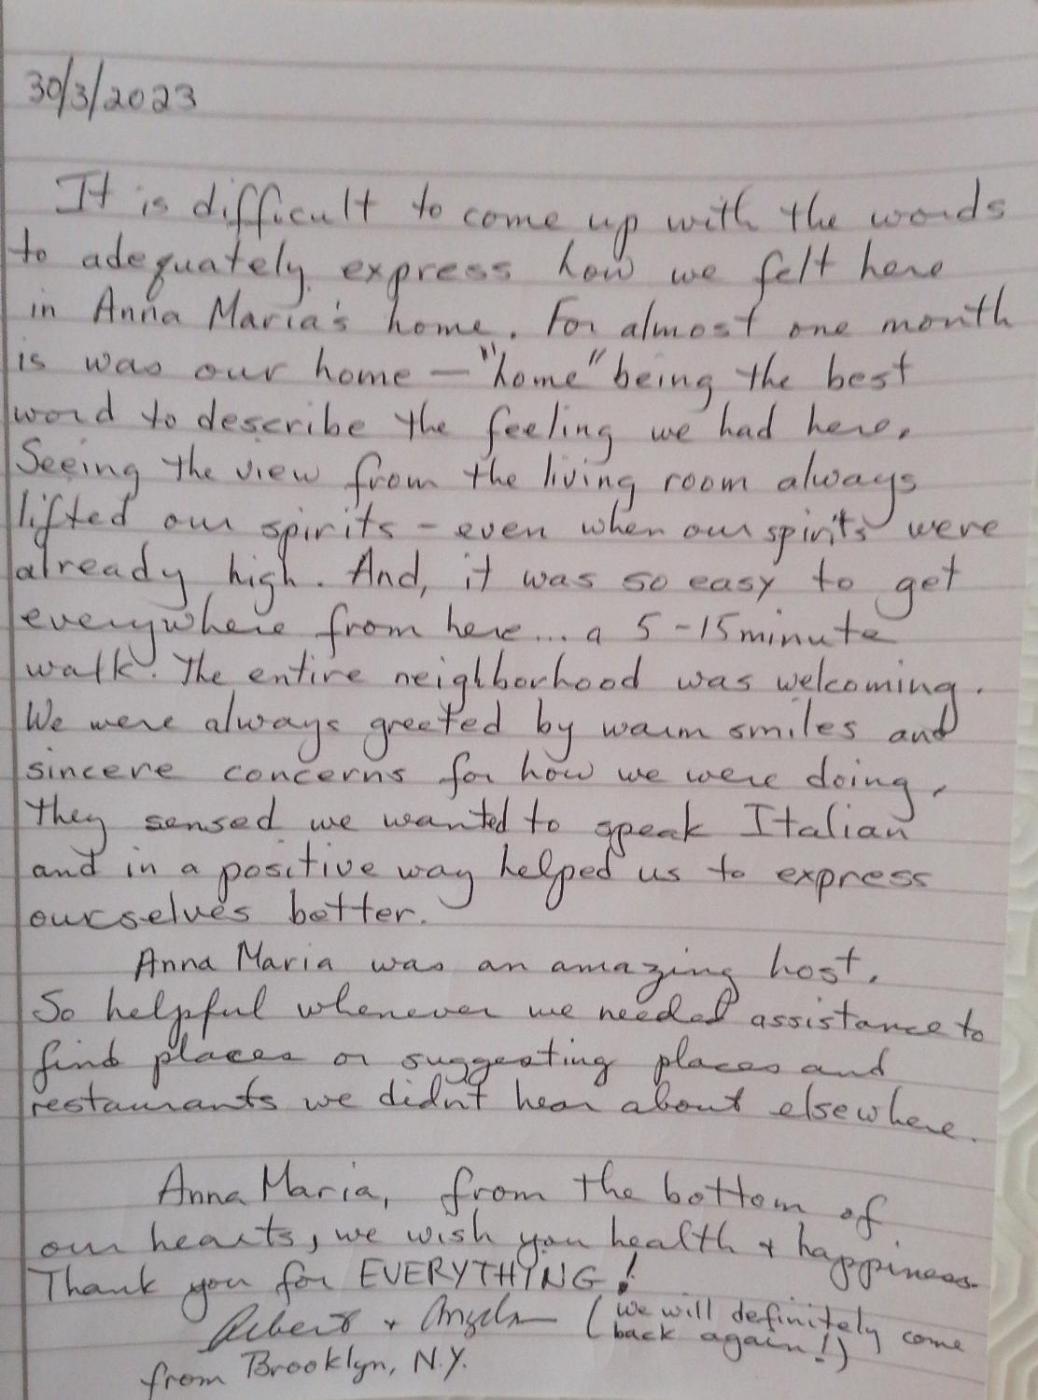 30/3/2023
It is difficult to come up with the words
to adequately express how we felt here
in Anna Maria's home. For almost one month
is was our home - "home" being the best
word to describe the feeling we had here.
Seeing the view from the living room always
lifted our spirits - even when our spirits were
already high. And, it was so easy to get
everywhere from here... a 5-15 minute
walk. The entire neighborhood was welcoming.
We were always greeted by warm smiles and
sincere concerns for how we were doing,
they sensed we wanted to speak Italian
and in a positive way helped us to express
ourselves better.
Anna Maria was an amazing host.
So helpful whenever we needed assistance to
find places or suggesting places and
restaurants we didn't hear about elsewhere.
Anna Maria, from the bottom of
our hearts, we wish you health + happiness.
Thank you for EVERYTHING!
Robert + Angela (we will definitely come
back again!)
from Brooklyn, N.Y.